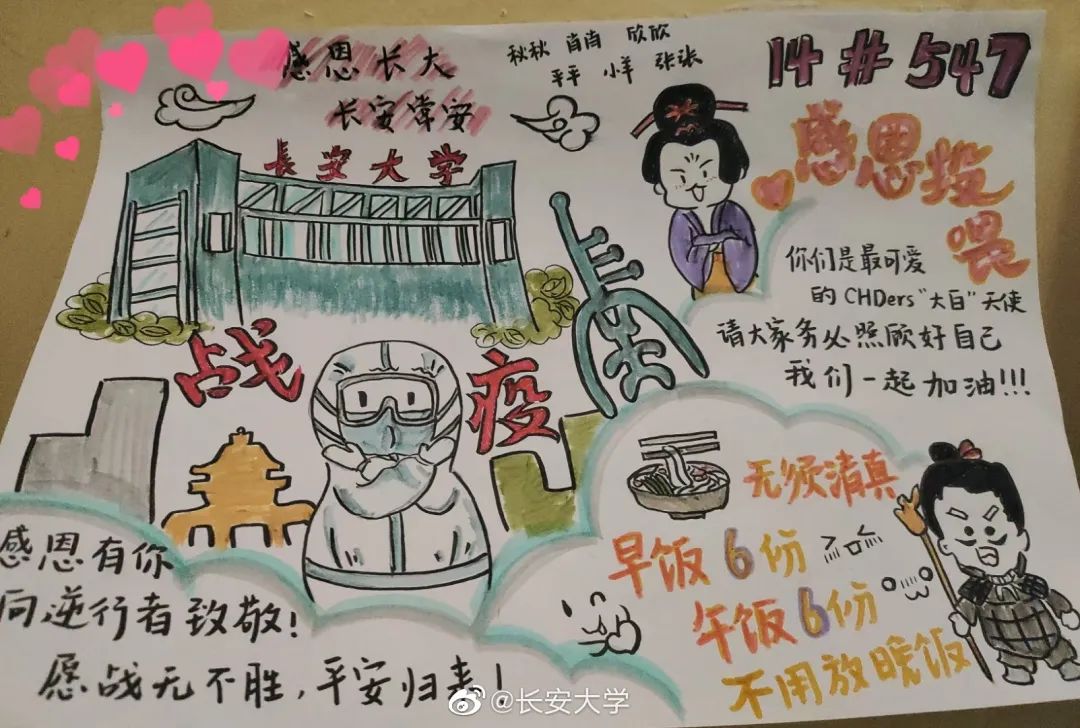 感恩长大
长安常安
秋秋 肖肖 欣欣
平平 小羊 张张
14#547
长安大学
感恩投
喂
你们是最可爱
的CHDers“大白”天使
请大家务必照顾好自己
我们一起加油!!!
战疫
无须清真
早饭6份
午饭6份
不用放晚饭
感恩有你
向逆行者致敬!
愿战无不胜,平安归来!
@长安大学